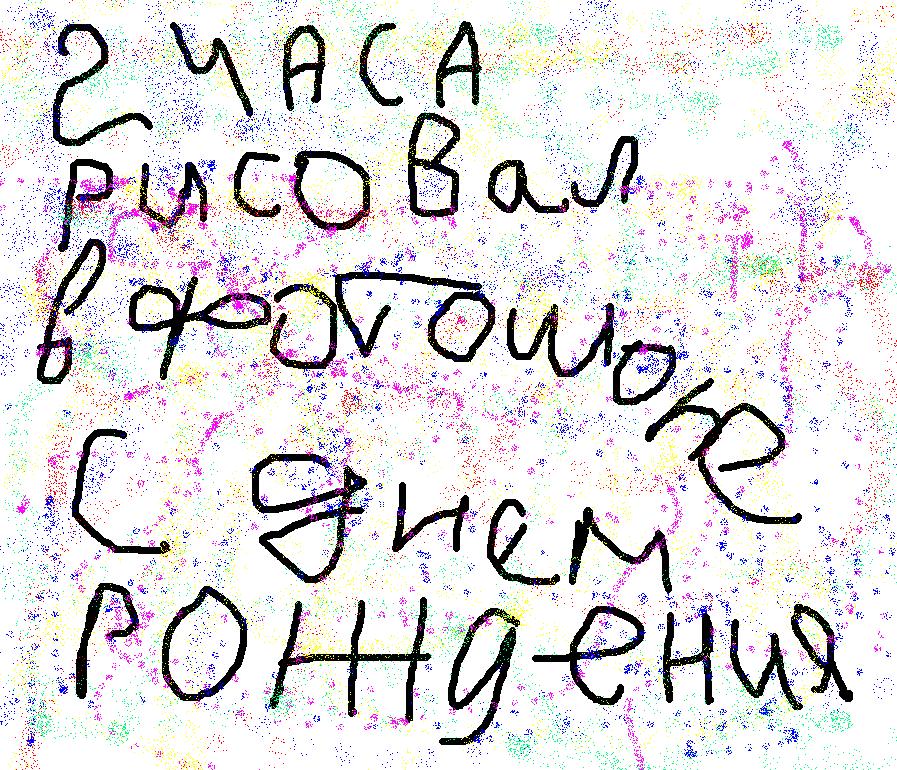 2 ЧАСА
рисовал
в фотошопе
С днем
РОЖДения